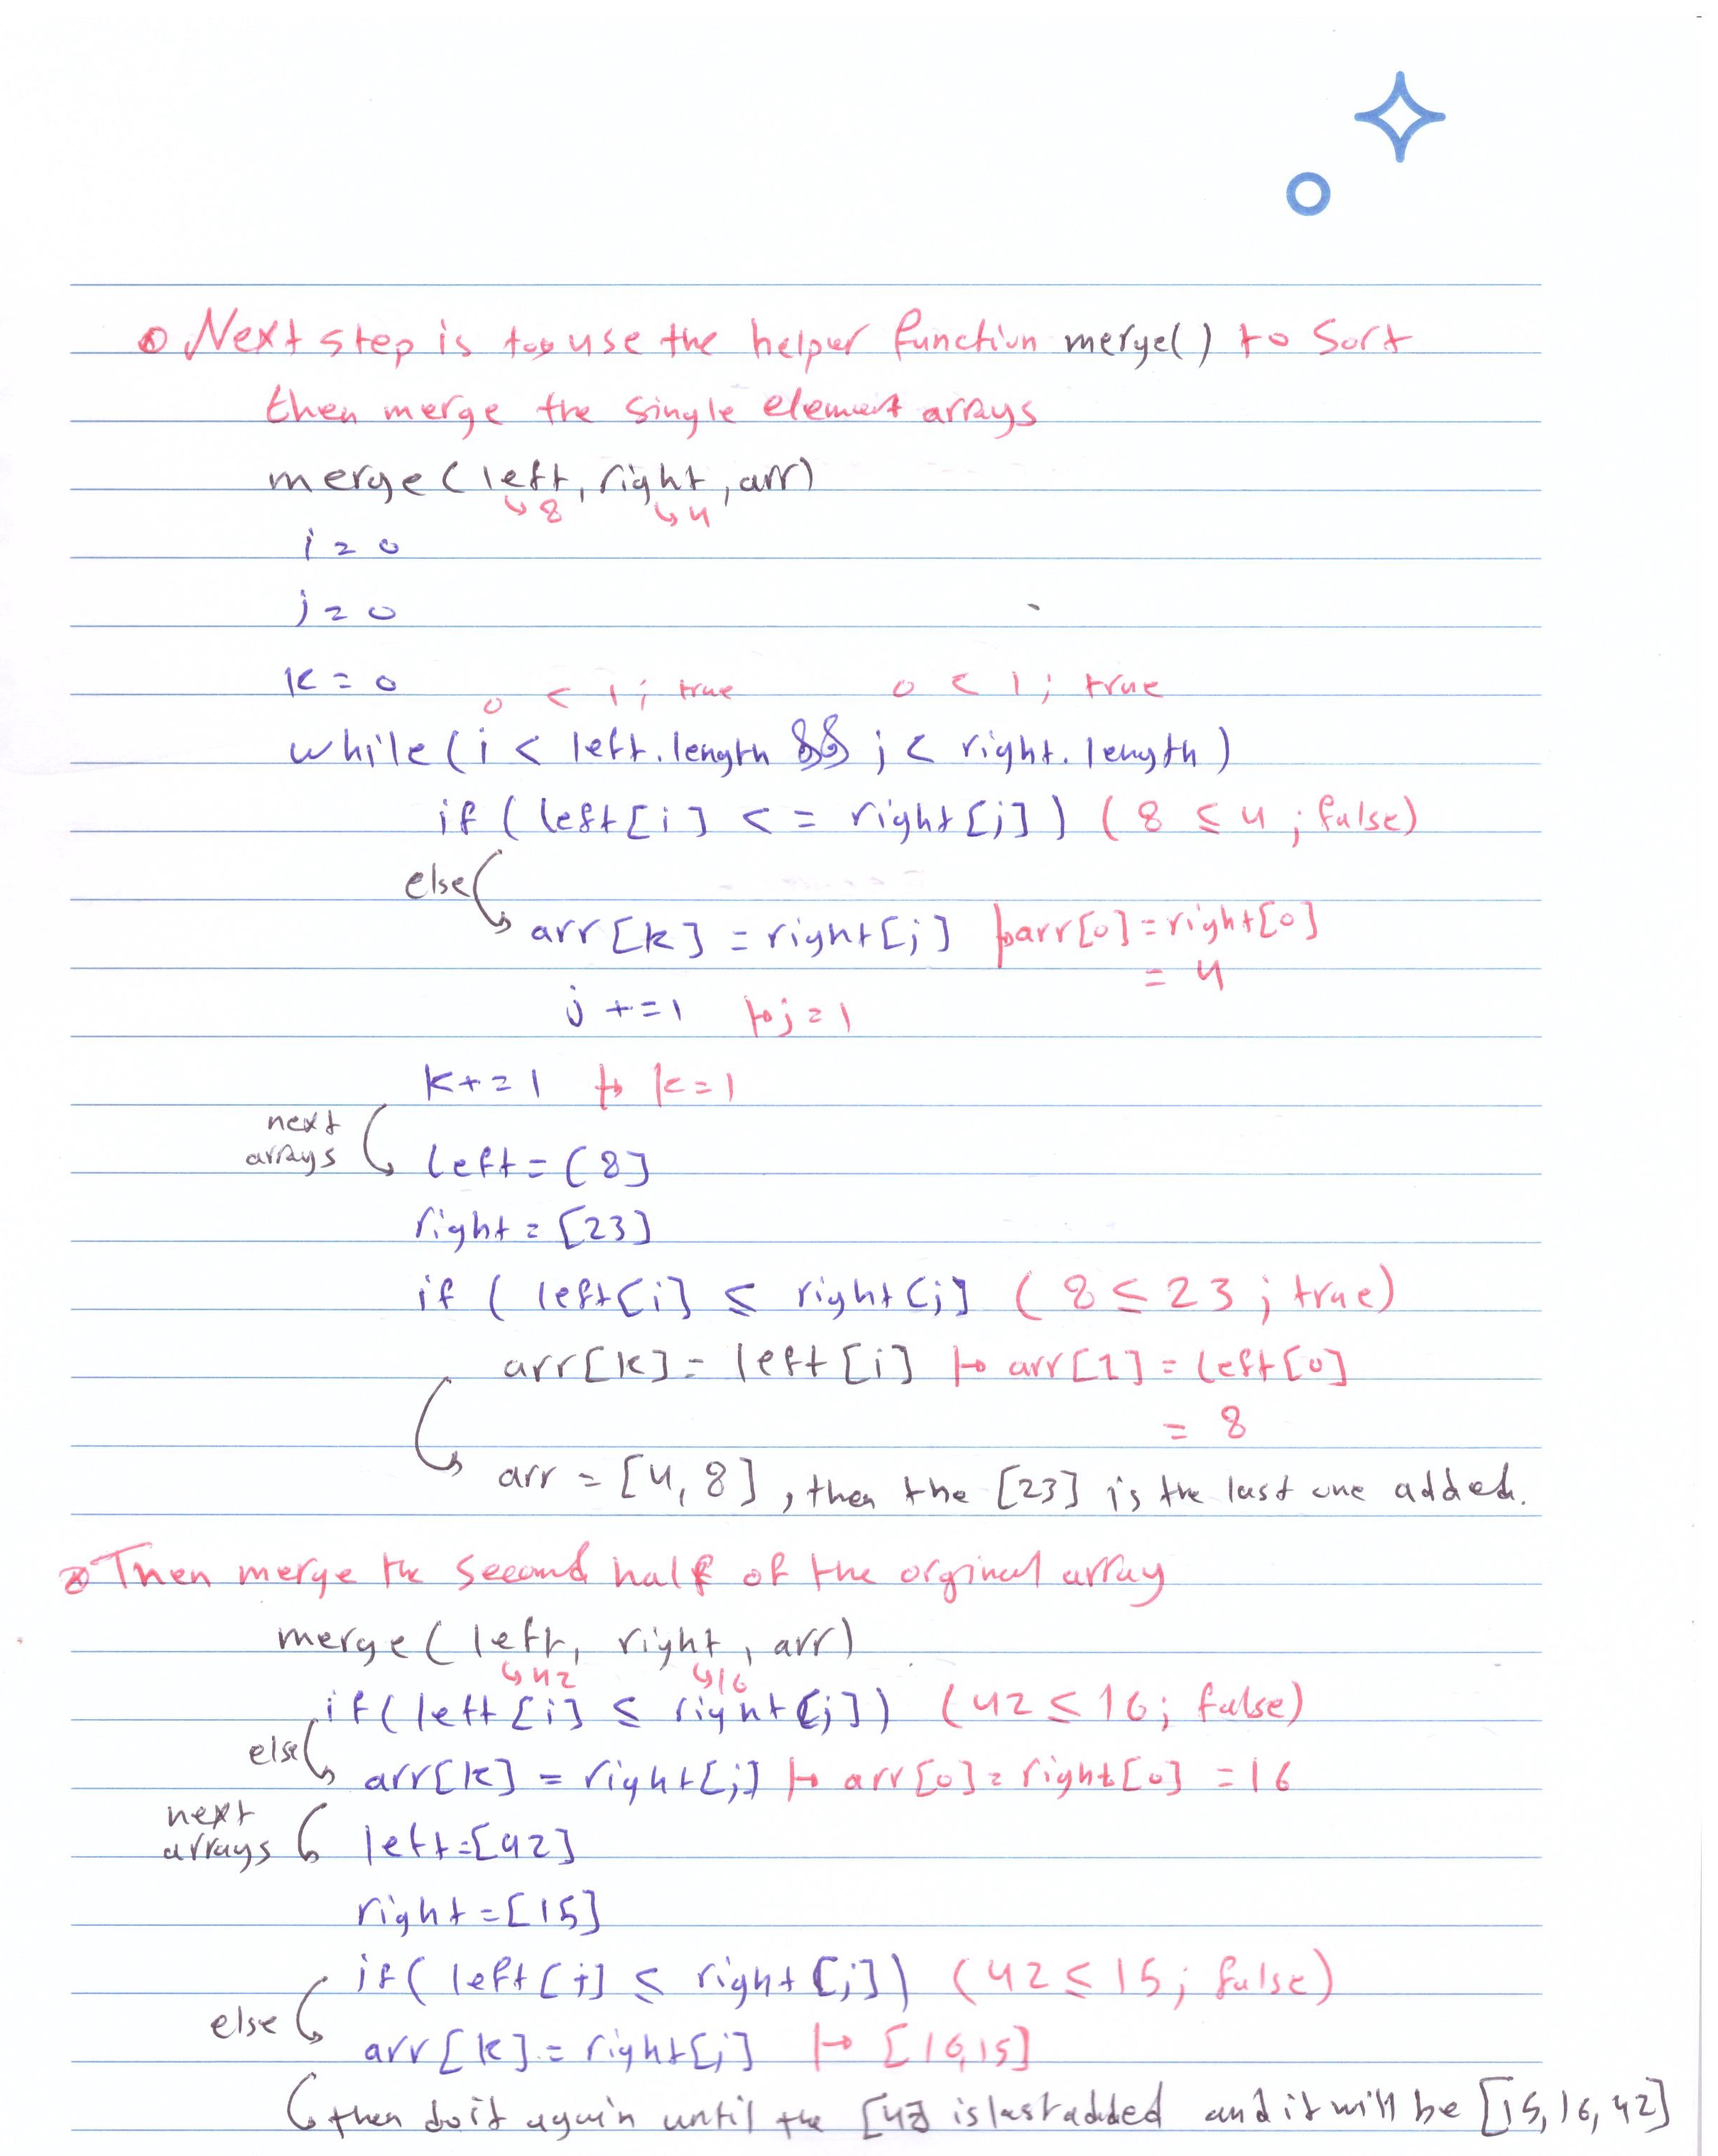 Next step is to use the helper function merge() to sort
then merge the single element arrays
merge(left, right, arr)
↳ 8 ↳ 4
i = 0
j = 0
k = 0 0 < 1; true 0 < 1; true
while(i < left.length && j < right.length)
if (left[i] <= right[j]) (8 ≤ 4; false)
else
arr[k] = right[j] ↦ arr[0] = right[0]
= 4
j += 1 ↦ j = 1
k += 1 ↦ k = 1
next
arrays left = [8]
right = [23]
if (left[i] ≤ right[j] (8 ≤ 23; true)
arr[k] = left[i] ↦ arr[1] = left[0]
= 8
arr = [4, 8], then the [23] is the last one added.
Then merge the second half of the orginal array
merge(left, right, arr)
↳ 42 ↳ 16
if(left[i] ≤ right[j]) (42 ≤ 16; false)
else
arr[k] = right[j] ↦ arr[0] = right[0] = 16
next
arrays left = [42]
right = [15]
if(left[i] ≤ right[j]) (42 ≤ 15; false)
else
arr[k] = right[j] ↦ [16,15]
then do it again until the [42] is last added and it will be [15, 16, 42]